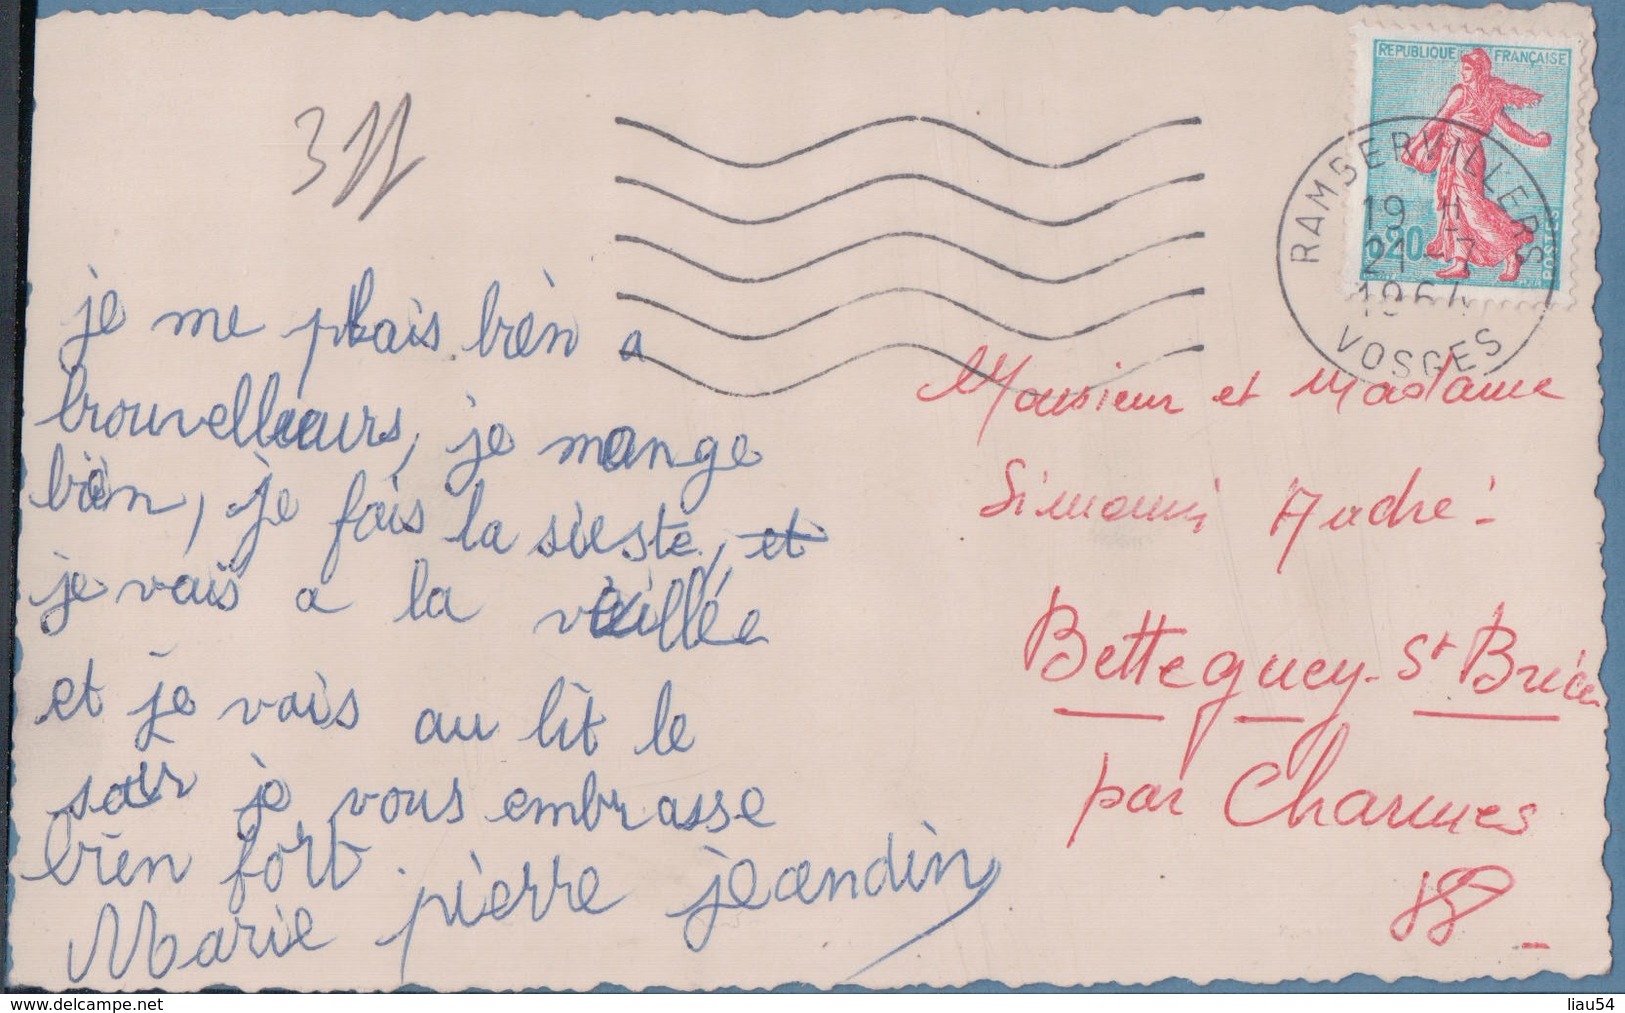 311
REPUBLIQUE FRANÇAISE
0,20
POSTES
RAMBERVILLERS
19 H
21 - 7
1964
VOSGES
je me plais bien a
brouvelleurs, je mange
bien, je fais la sieste, et
je vais a la veillée
et je vais au lit le
soir je vous embrasse
bien fort
Marie pierre jeandin
Monsieur et Madame
Simonin André -
Bettegney - St Brice
par Charmes
88 -
www.delcampe.net
liau54